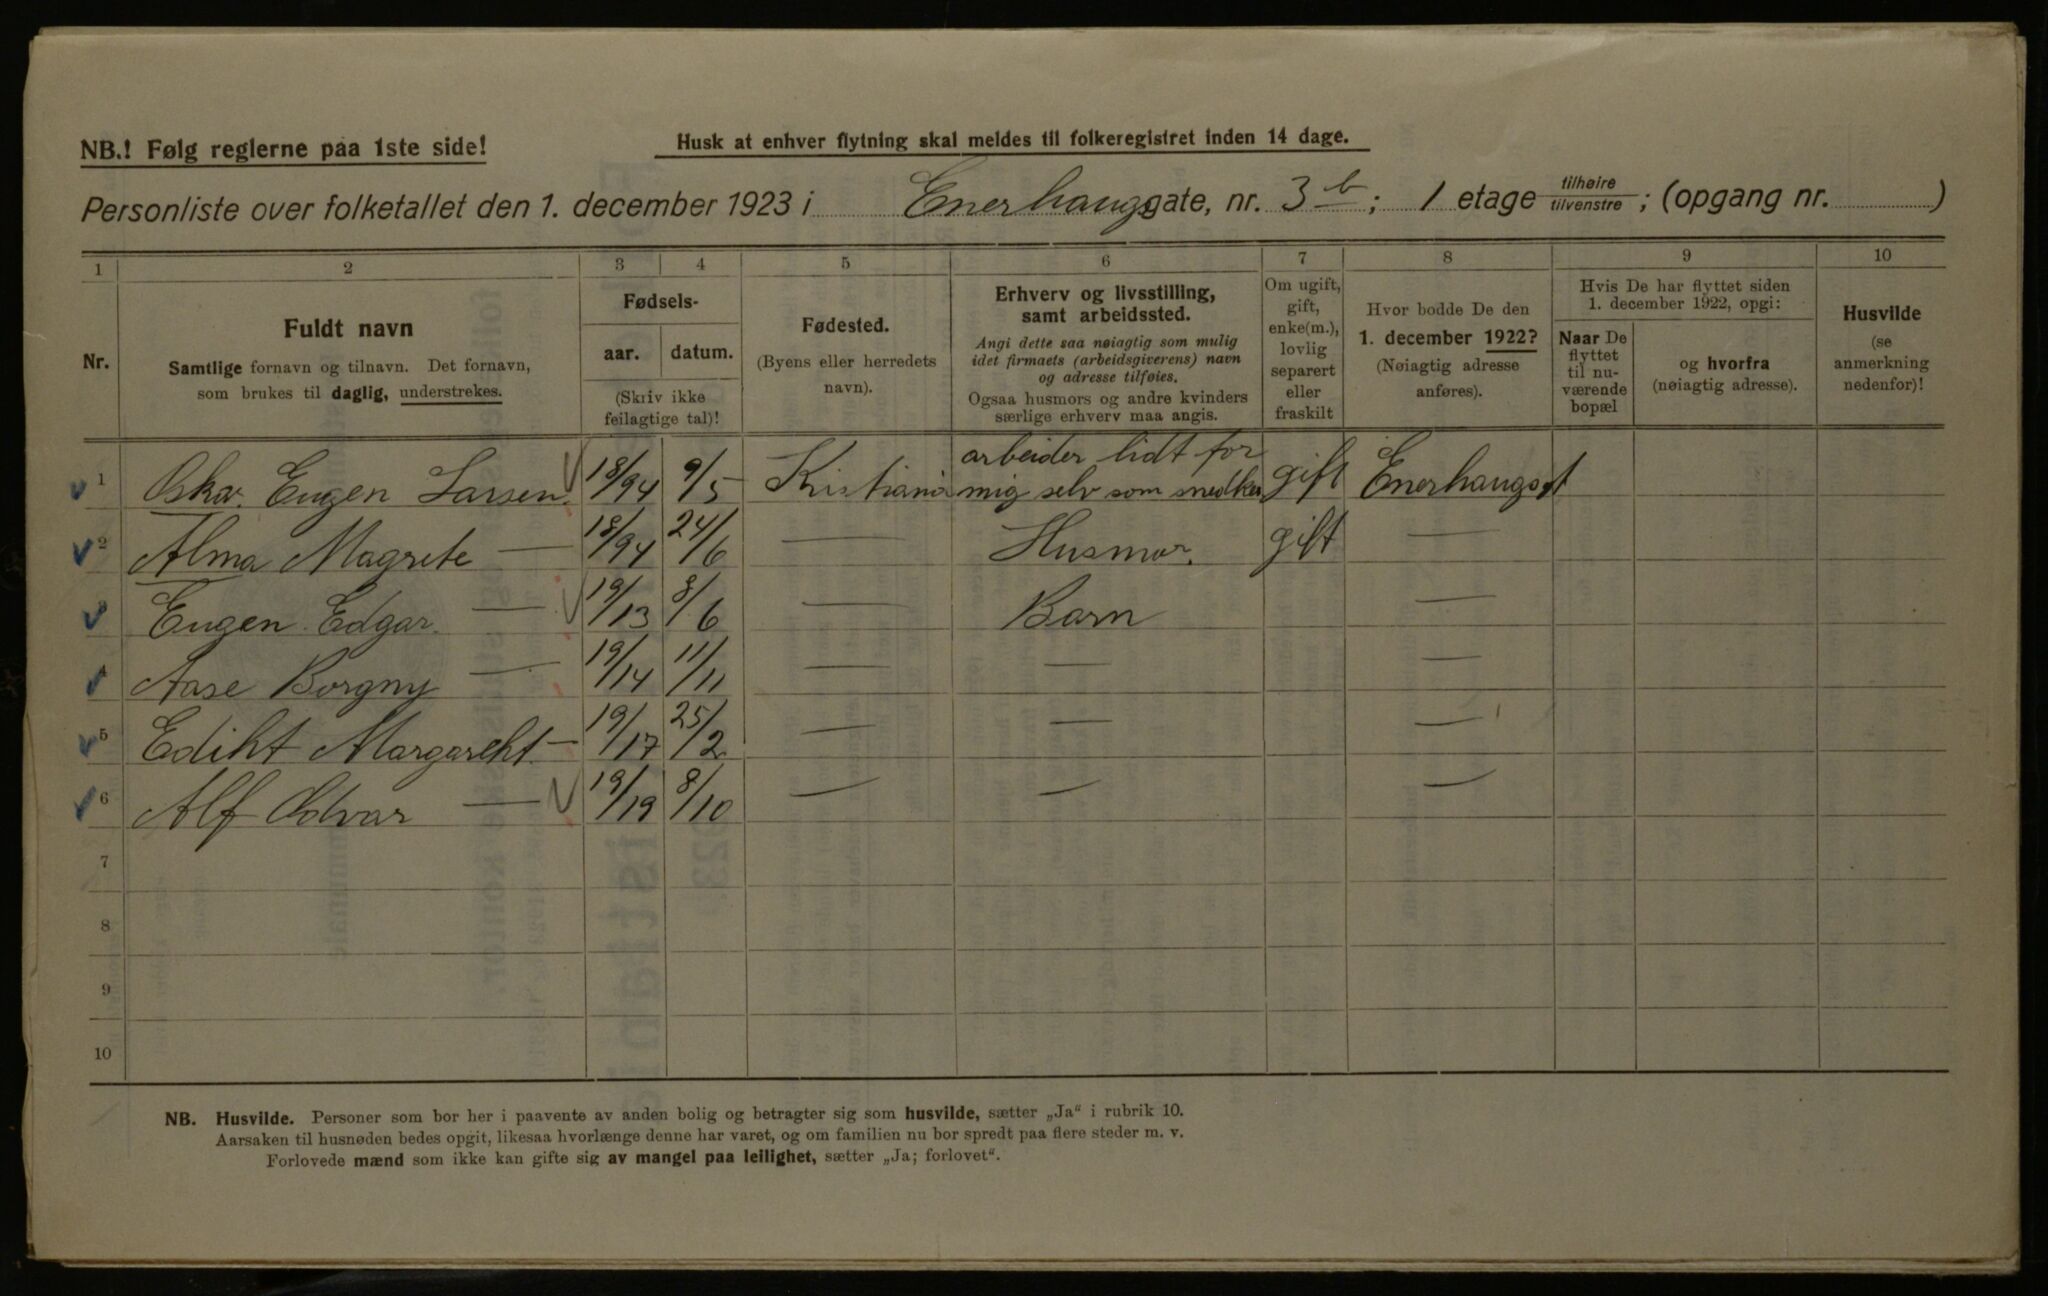 NB.! Følg reglerne paa 1ste side!
Husk at enhver flytning skal meldes til folkeregistret inden 14 dage.
Personliste over folketallet den 1. december 1923 i Enerhaugsgate, nr. 3 b; 1 etage tilhøire tilvenstre; (opgang nr. )
1 2 3 4 5 6 7 8 9 10
Nr.
Fuldt navn
Samtlige fornavn og tilnavn. Det fornavn,
som brukes til daglig, understrekes.
Fødsels-
aar. datum.
(Skriv ikke
feilagtige tal)!
Fødested.
(Byens eller herredets
navn).
Erhverv og livsstilling,
samt arbeidssted.
Angi dette saa nøiagtig som mulig
idet firmaets (arbeidsgiverens) navn
og adresse tilføies.
Ogsaa husmors og andre kvinders
særlige erhverv maa angis.
Om ugift,
gift,
enke(m.),
lovlig
separert
eller
fraskilt
Hvor bodde De den
1. december 1922?
(Nøiagtig adresse
anføres).
Hvis De har flyttet siden
1. december 1922, opgi:
Naar De
flyttet
til nu-
værende
bopæl
og hvorfra
(nøiagtig adresse).
Husvilde
(se
anmerkning
nedenfor)!
1 Oskar Eugen Larsen 18/94 9/5 Kristiania arbeider lidt for mig selv som snedker gift Enerhaugsgt
2 Alma Magrete — 18/94 24/6 — Husmor. gift —
3 Eugen Edgar — 19/13 8/6 — Barn —
4 Aase Borgny — 19/14 11/11 — — —
5 Ediht Margareht — 19/17 25/2 — — —
6 Alf Odvar — 19/19 8/10 — — —
7
8
9
10
NB. Husvilde. Personer som bor her i paavente av anden bolig og betragter sig som husvilde, sætter „Ja“ i rubrik 10.
Aarsaken til husnøden bedes opgit, likesaa hvorlænge denne har varet, og om familien nu bor spredt paa flere steder m. v.
Forlovede mænd som ikke kan gifte sig av mangel paa leilighet, sætter „Ja; forlovet“.